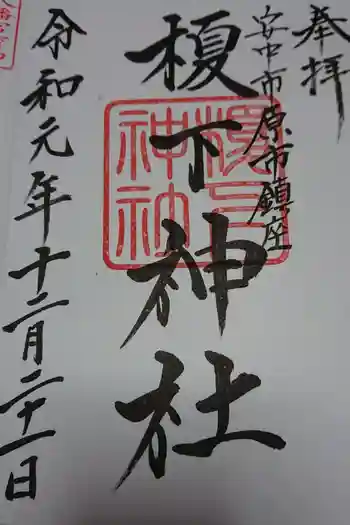 奉拝
安中市原市鎮座
榎下神社
神社
令和元年十二月二十一日